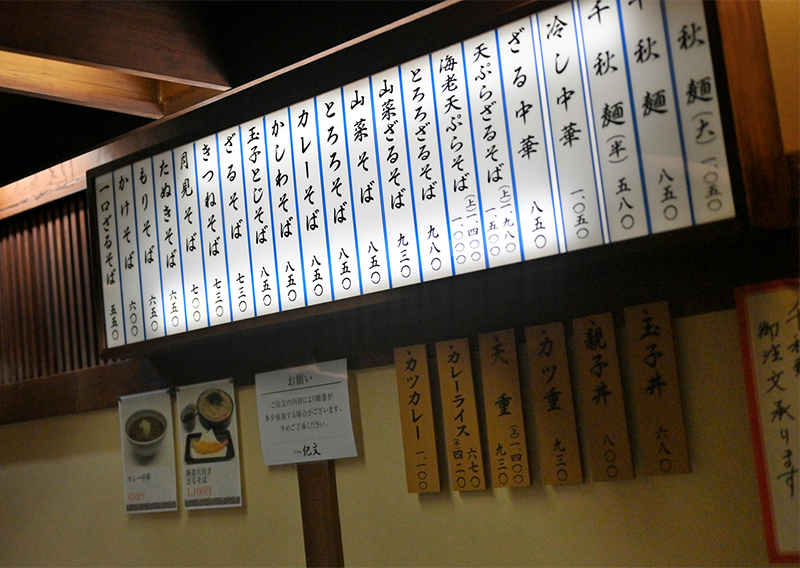 千秋麺(大) 一、〇五〇
千秋麺 八五〇
千秋麺(半) 五八〇
冷し中華 一、〇五〇
ざる中華 八五〇
天ぷらざるそば (上)一、九八〇 一、五〇〇
海老天ぷらそば (上)一、四〇〇 一、〇〇〇
とろろざるそば 九八〇
山菜ざるそば 九三〇
山菜そば 八五〇
とろろそば 八五〇
カレーそば 八五〇
かしわそば 八五〇
玉子とじそば 八五〇
ざるそば 七三〇
きつねそば 七三〇
月見そば 七〇〇
たぬきそば 六五〇
もりそば 六五〇
かけそば 六〇〇
一口ざるそば 五五〇
玉子丼 六八〇
親子丼 八〇〇
カツ重 九三〇
天重 (上)一、四〇〇 九三〇
カレーライス 六七〇 (小)四二〇
カツカレー 一、一〇〇
お願い
ご注文の内容により順番が
多少前後する場合がございます。
予めご了承ください。
紀文
カレー中華
850円
海老天付き
ざるそば
1,100円
千秋麺
御注文承ります